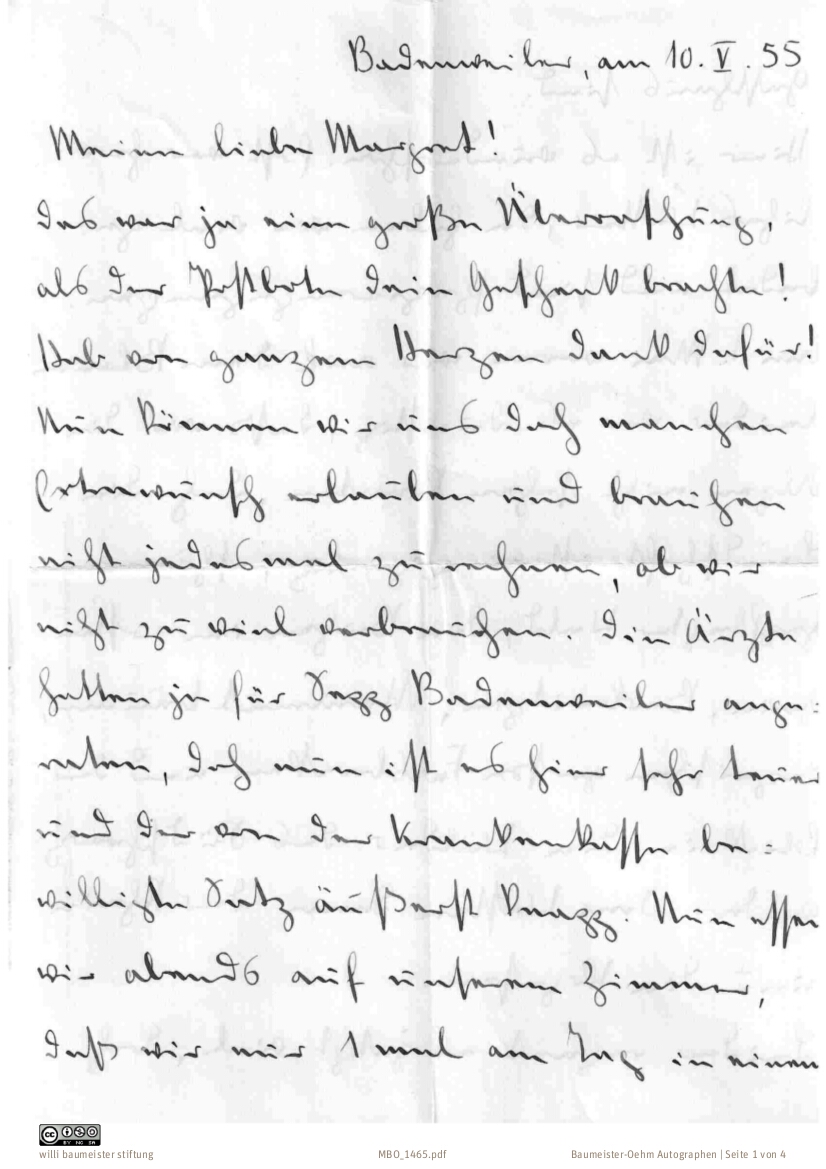 Badenweiler, am 10. V. 55
Meine liebe Margret!
das war ja eine große Überraschung,
als der Postbote dein Geschenk brachte!
Hab von ganzem Herzen dank dafür!
Nun können wir uns doch manchen
Extrawunsch erlauben und brauchen
nicht jedesmal zu rechnen, ob wir
nicht zu viel verbrauchen. Die Ärzte
hatten ja für Sepp Badenweiler ange-
raten, doch nun ist es hier sehr teuer
und der von der Krankenkasse be-
willigte Satz äußerst knapp. Nun essen
wir abends auf unserem Zimmer,
daß wir nur 1 mal am Tag in einen
CC BY NC SA
willi baumeister stiftung MBO_1465.pdf Baumeister-Oehm Autographen | Seite 1 von 4